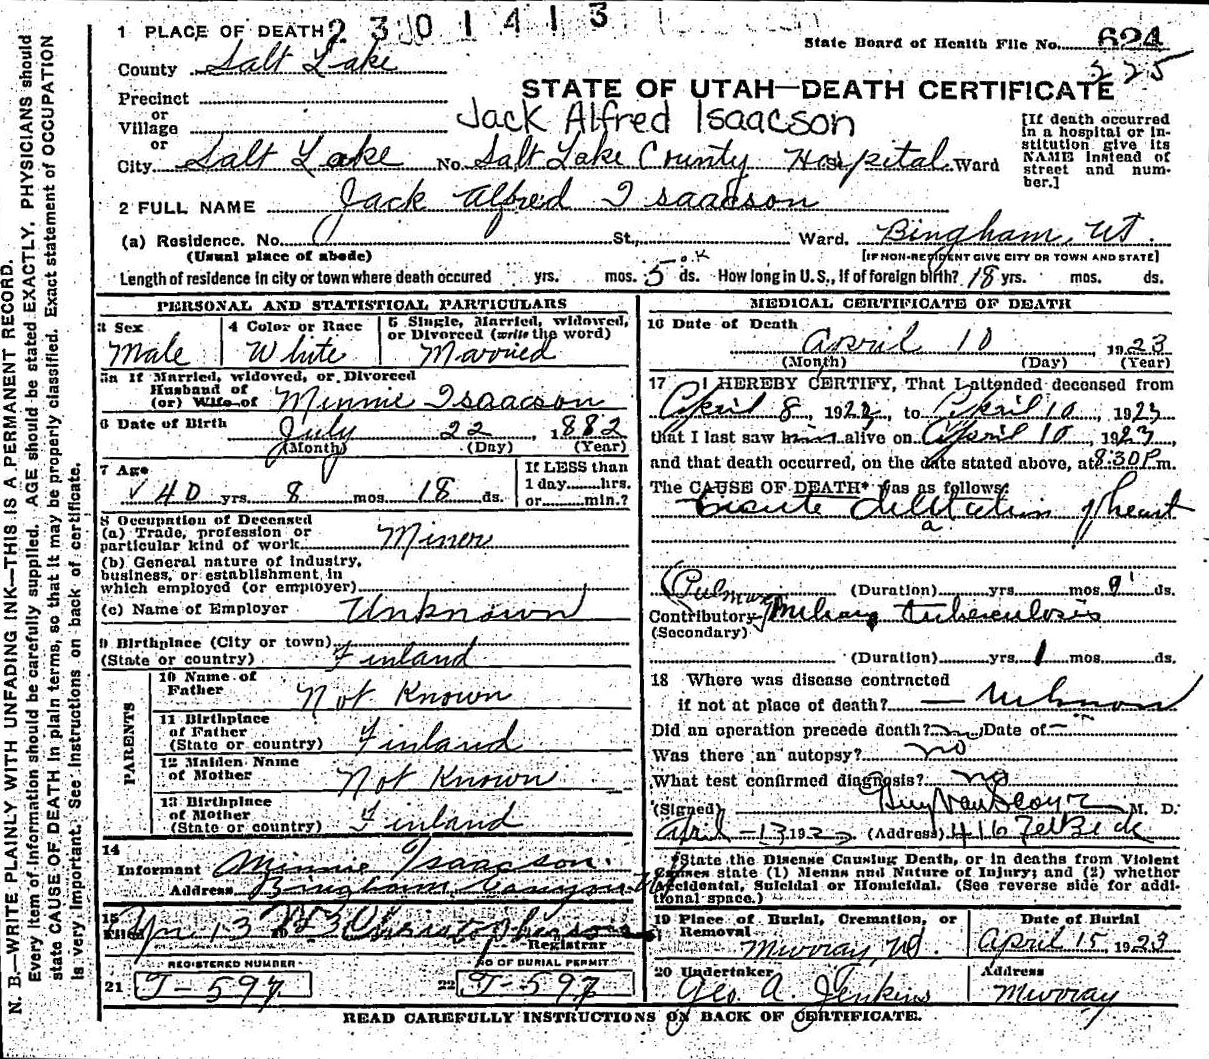 1 PLACE OF DEATH 2301413
State Board of Health File No. 624
225
County Salt Lake
STATE OF UTAH—DEATH CERTIFICATE
Precinct
or
Village
Jack Alfred Isaacson
or
City Salt Lake No. Salt Lake County Hospital Ward
[If death occurred
in a hospital or in-
stitution give its
NAME instead of
street and num-
ber.]
2 FULL NAME Jack Alfred Isaacson
(a) Residence. No. St., Ward. Bingham, Ut.
(Usual place of abode)
[IF NON-RESIDENT GIVE CITY OR TOWN AND STATE]
Length of residence in city or town where death occured yrs. mos. 5 ds. How long in U. S., If of foreign birth? 18 yrs. mos. ds.
PERSONAL AND STATISTICAL PARTICULARS
3 Sex
Male
4 Color or Race
White
5 Single, Married, widowed,
or Divorced (write the word)
Married
5a If Married, widowed, or Divorced
Husband of
(or) Wife of Minnie Isaacson
6 Date of Birth July 22, 1882
(Month) (Day) (Year)
7 Age
40 yrs. 8 mos. 18 ds.
If LESS than
1 day hrs.
or min.?
8 Occupation of Deceased
(a) Trade, profession or
particular kind of work Miner
(b) General nature of industry,
business, or establishment in
which employed (or employer)
(c) Name of Employer Unknown
9 Birthplace (City or town)
(State or country) Finland
PARENTS
10 Name of
Father Not Known
11 Birthplace
of Father
(State or country) Finland
12 Maiden Name
of Mother Not Known
13 Birthplace
of Mother
(State or country) Finland
14
Informant Minnie Isaacson.
Address Bingham Canyon Ut
15
Filed Apr 13 1923
Registrar
REGISTERED NUMBER
21 J-597
NO OF BURIAL PERMIT
22 J-597
MEDICAL CERTIFICATE OF DEATH
16 Date of Death
April 10 1923
(Month) (Day) (Year)
17 I HEREBY CERTIFY, That I attended deceased from
April 8, 1923, to April 10, 1923
that I last saw him alive on April 10, 1923,
and that death occurred, on the date stated above, at 8:30 P.m.
The CAUSE OF DEATH* was as follows:
Acute dilitation of heart
a
(Duration) yrs. mos. 9 ds.
Contributory Miliary tuberculosis
(Secondary)
(Duration) yrs. 1 mos. ds.
18 Where was disease contracted
if not at place of death? — Unknown
Did an operation precede death? no Date of —
Was there an autopsy? no
What test confirmed diagnosis? no
(Signed) M. D.
April -13, 1923 (Address) 416
*State the Disease Causing Death, or in deaths from Violent
Causes state (1) Means and Nature of Injury; and (2) whether
Accidental, Suicidal or Homicidal. (See reverse side for addi-
tional space.)
19 Place of Burial, Cremation, or
Removal
Murray, Ut.
Date of Burial
April 15 1923
20 Undertaker
Geo. A. Jenkins
Address
Murray
READ CAREFULLY INSTRUCTIONS ON BACK OF CERTIFICATE.
N. B.—WRITE PLAINLY WITH UNFADING INK—THIS IS A PERMANENT RECORD.
Every item of information should be carefully supplied. AGE should be stated EXACTLY. PHYSICIANS should
state CAUSE OF DEATH in plain terms, so that it may be properly classified. Exact statement of OCCUPATION
is very important. See instructions on back of certificate.